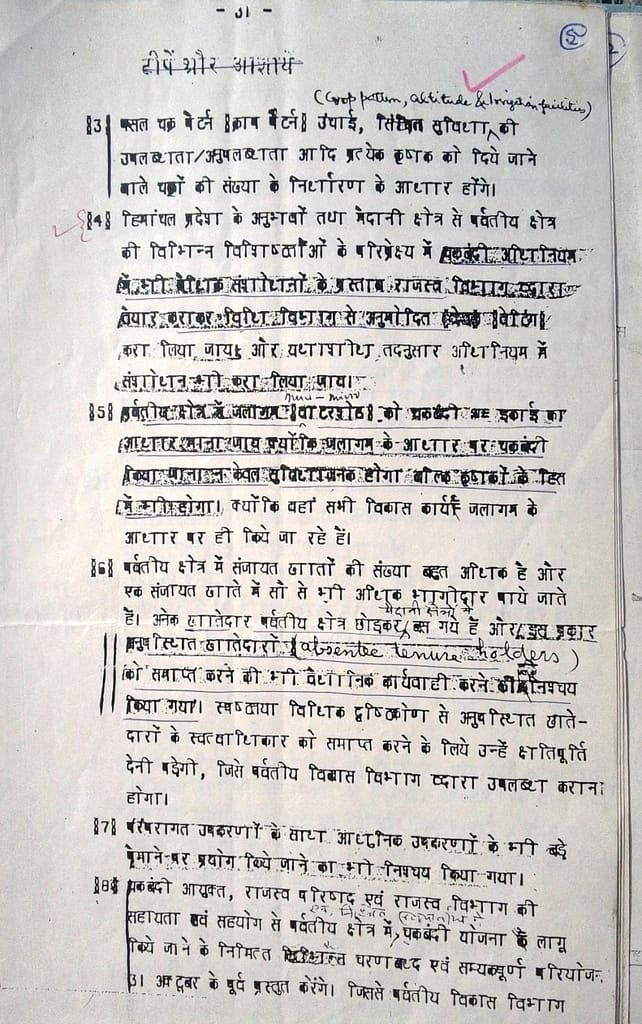 - 31 -
5
(Crop pattern, altitude & Irrigation facilities)
§3§ फसल चक्र पैटर्न §क्राप पैटर्न§ उंचाई, सिंचित सुविधा की
उपलब्धता/अनुपलब्धता आदि प्रत्येक कृषक को दिये जाने
वाले चकों की संख्या के निर्धारण के आधार होंगे।
§4§ हिमांचल प्रदेश के अनुभावों तथा मैदानी क्षेत्र से पर्वतीय क्षेत्र
की विभिन्न विशिष्टताओं के परिप्रेक्ष्य में चकबंदी अधिनियम
में भी वैधिक संशोधनों के प्रस्ताव राजस्व विभाग द्वारा
तैयार कराकर विधि विभाग से अनुमोदित §वेटिंग§
करा लिया जाय और यथाशीघ्र तदनुसार अधिनियम में
संशोधन भी करा लिया जाय।
mini - micro
§5§ पर्वतीय क्षेत्र में जलागम §वाटरशेड§ को चकबंदी का इकाई का
आधार माना जाय क्योंकि जलागम के आधार पर चकबंदी
किया जाना न केवल सुविधाजनक होगा बल्कि कृषकों के हित
में भी होगा। क्योंकि वहां सभी विकास कार्य जलागम के
आधार पर ही किये जा रहे हैं।
§6§ पर्वतीय क्षेत्र में संजायत खातों की संख्या बहुत अधिक है और
एक संजायत खाते में सौ से भी अधिक भागीदार पाये जाते
मैदानी क्षेत्रों में
हैं। अनेक खातेदार पर्वतीय क्षेत्र छोड़कर बस गये हैं और इस प्रकार
अनुपस्थित खातेदारों (absentee tenure holders)
को समाप्त करने की भी वैधानिक कार्यवाही करने का निश्चय
किया गया। स्पष्टतया विधिक दृष्टिकोण से अनुपस्थित खाते-
दारों के स्वत्वाधिकार को समाप्त करने के लिये उन्हें क्षतिपूर्ति
देनी पड़ेगी, जिसे पर्वतीय विकास विभाग द्वारा उपलब्ध कराना
होगा।
§7§ परंपरागत उपकरणों के साथ आधुनिक उपकरणों के भी बड़े
पैमाने पर प्रयोग किये जाने का भी निश्चय किया गया।
§8§ चकबंदी आयुक्त, राजस्व परिषद एवं राजस्व विभाग की
सहायता एवं सहयोग से पर्वतीय क्षेत्र में, चकबंदी योजना के लागू
किये जाने के निमित्त चरणबध्द एवं सम्यकपूर्ण परियोज
31 अक्टूबर के पूर्व प्रस्तुत करेंगे। जिससे पर्वतीय विकास विभाग